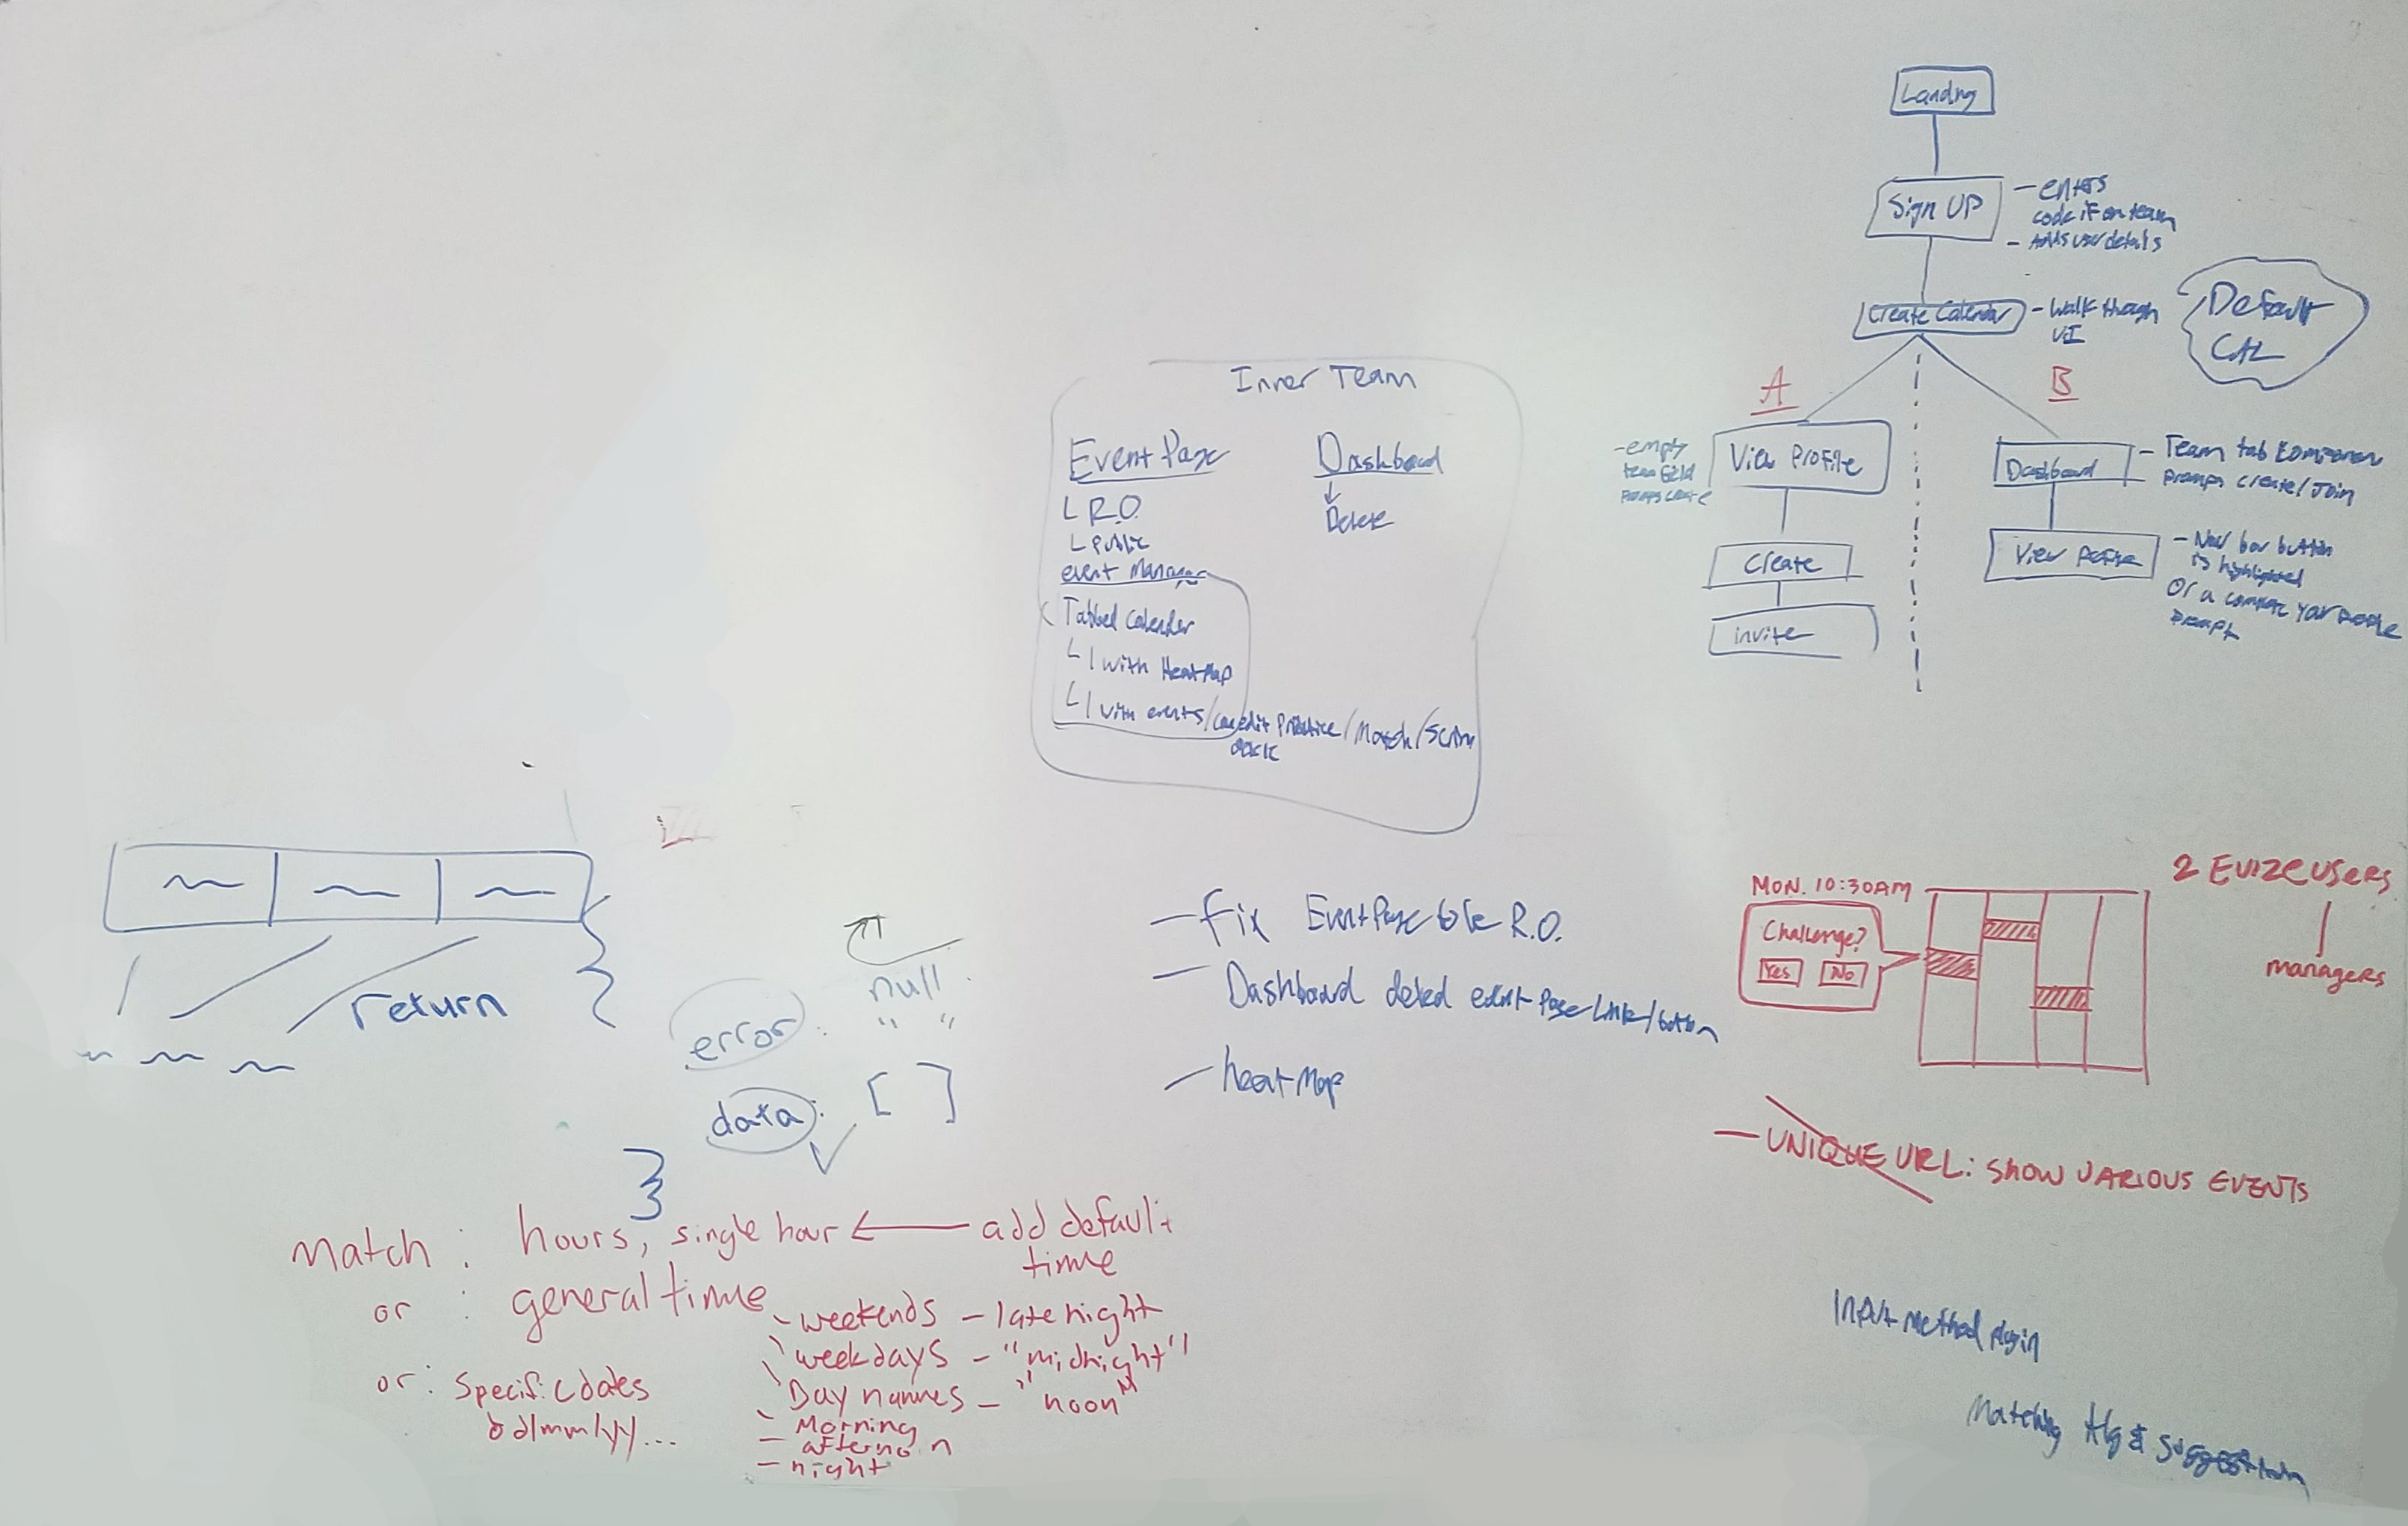 Landing
Sign UP
- enters
code if on team
- Adds user details
Create Calendar
- Walk though
UI
Default
CAL
A
B
View Profile
- empty
team field
Create
invite
Dashboard
- Team tab
promps create/Join
View
- Nav bar button
is highlighted
Or a your
prompt
Inner Team
Event Page
R.O.
Public
event Manager
Tabbed Calender
with HeatMap
with events/ edit Practice/Match/Scrim
Dashboard
Delete
- Fix EventPage to be R.O.
- Dashboard event Page Link/button
- heat Map
return
error: null
" "
data: [ ]
}
match : hours, single hour ← add default
time
or : general time
- weekends - late night
- weekdays - "midnight"
- Day names - "noon"
- Morning
- afternoon
- night
or: Specific dates
dd/mm/yy...
MON. 10:30AM
Challenge?
Yes No
2 EVIZE USERS
managers
- UNIQUE URL: SHOW VARIOUS EVENTS
Input Method plugin
Matching Alg &